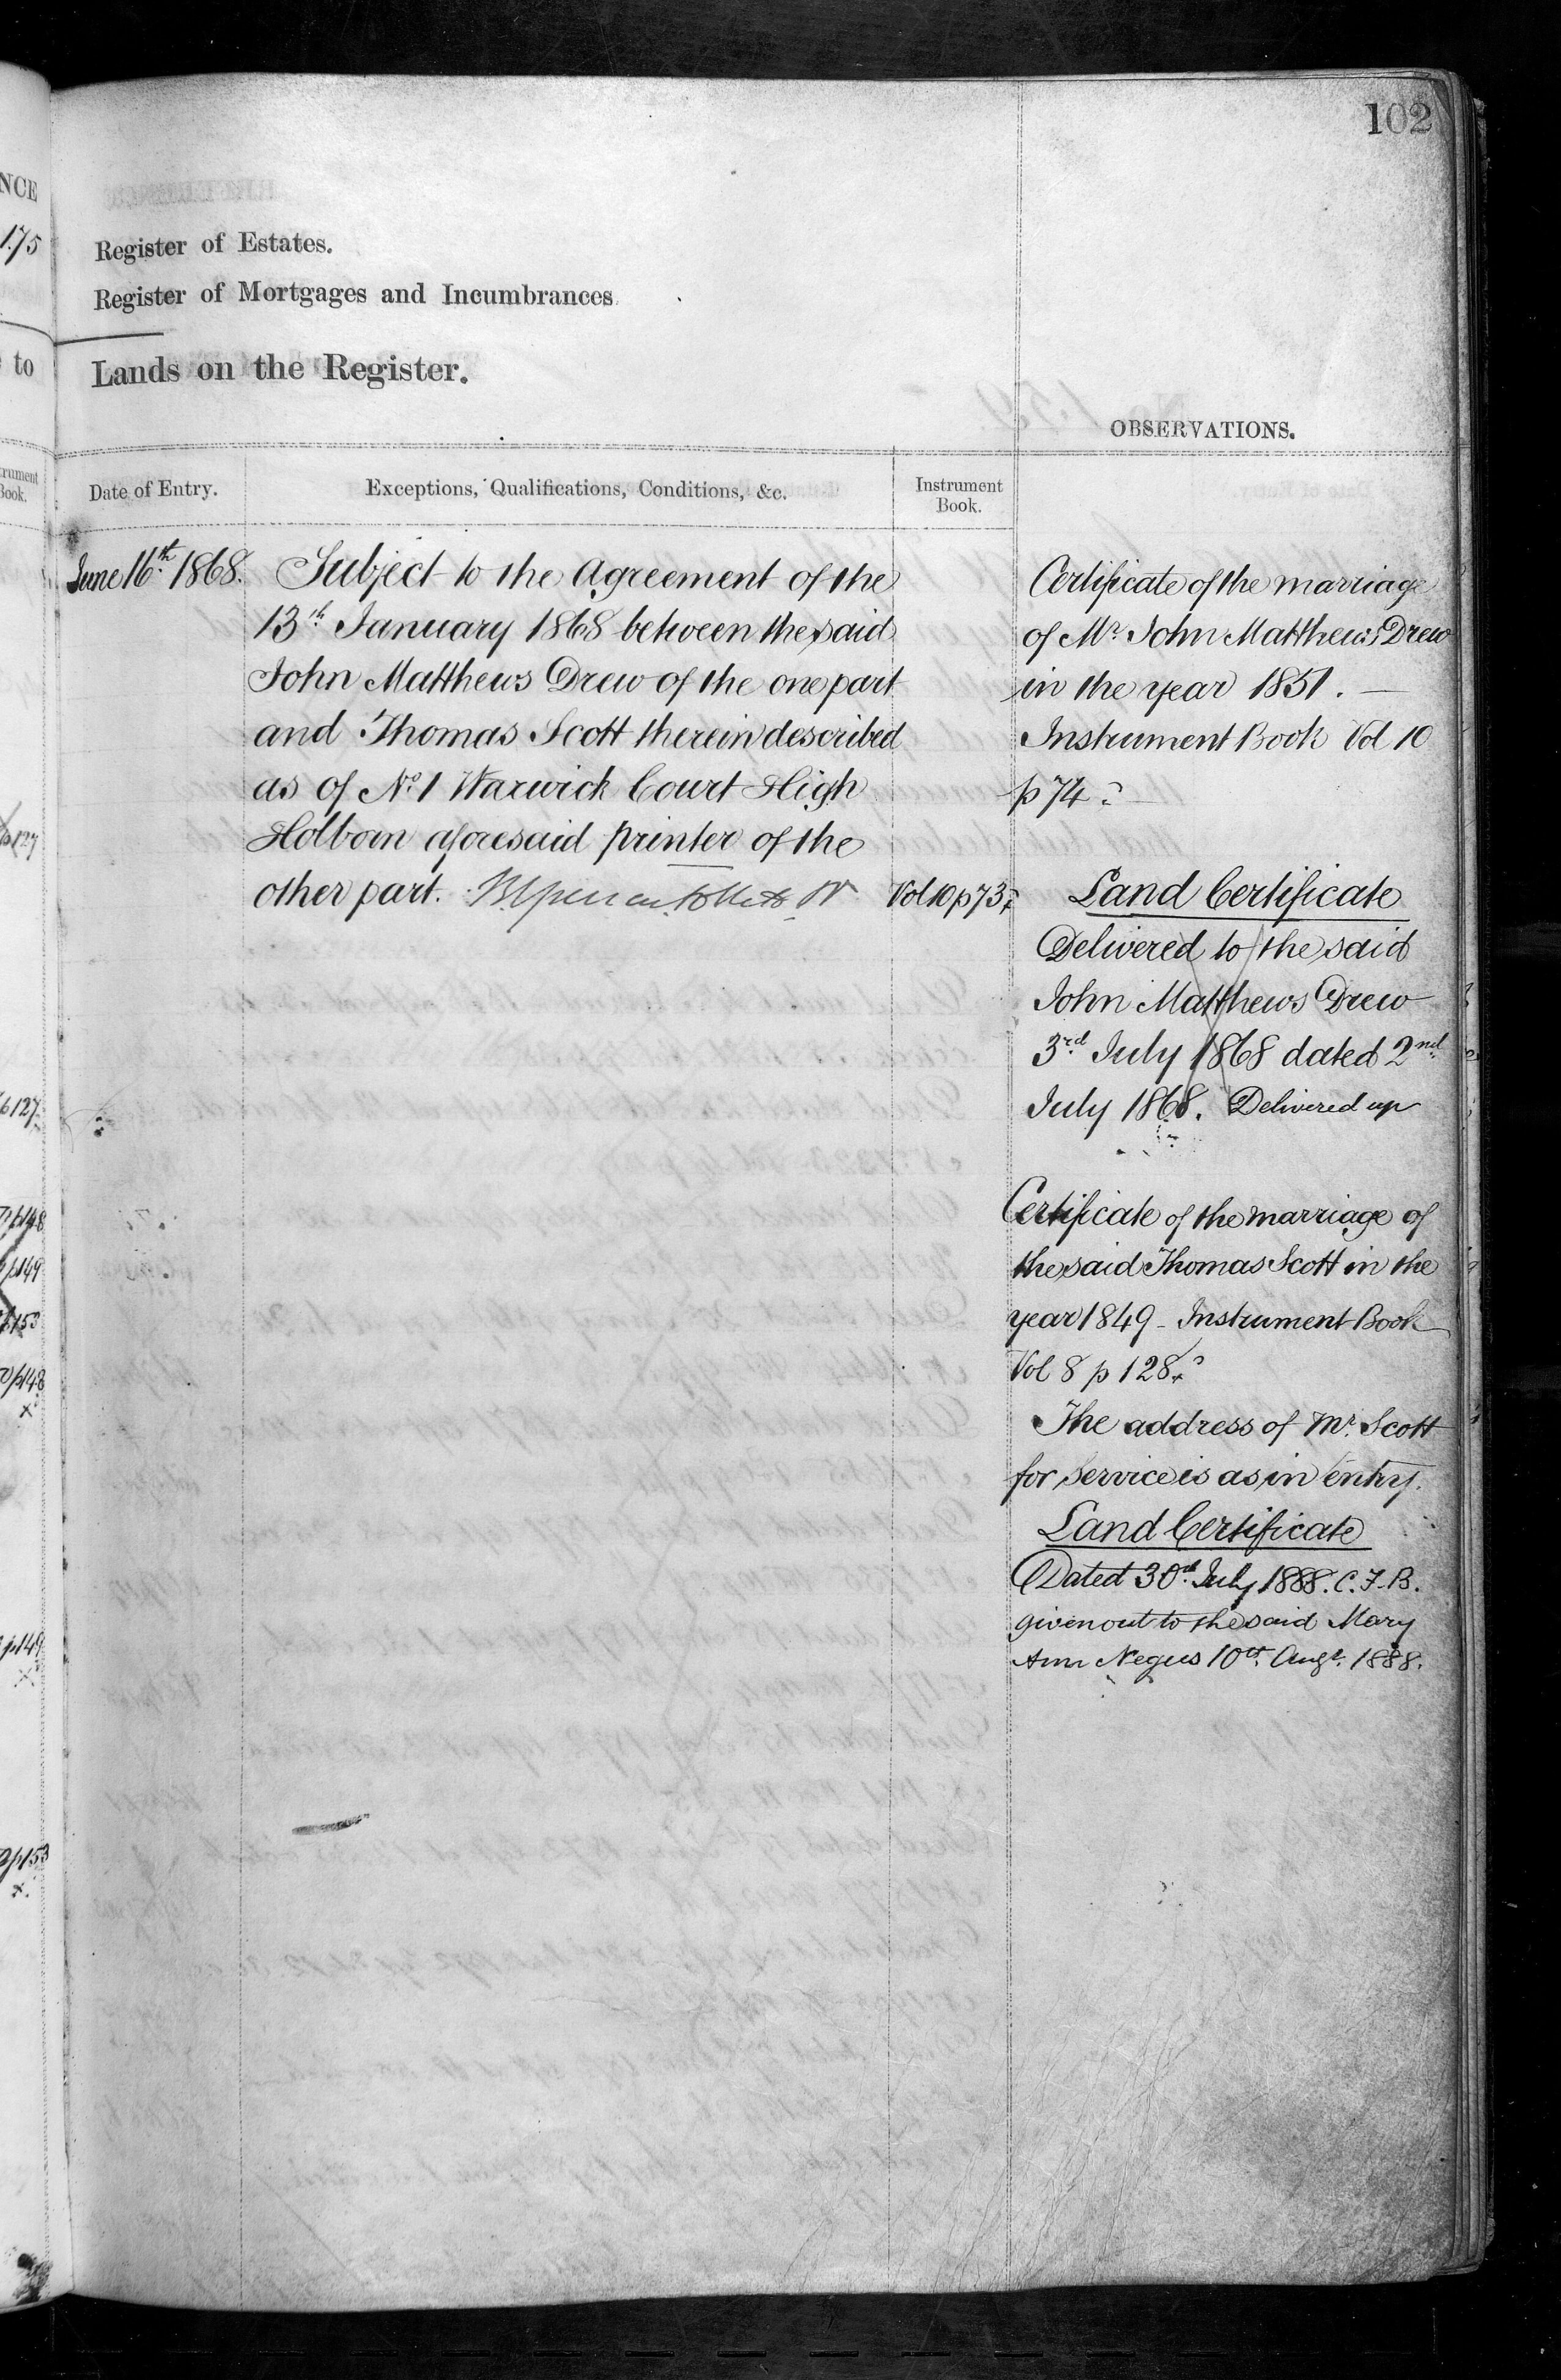 102
NCE
175
to
Register of Estates.
Register of Mortgages and Incumbrances.
Lands on the Register.
OBSERVATIONS.
Date of Entry.
Exceptions, Qualifications, Conditions, &c.
Instrument
Book.
June 16th 1868.
Subject to the Agreement of the
13th January 1868 between the said
John Matthews Drew of the one part
and Thomas Scott therein described
as of No. 1 Warwick Court High
Holborn aforesaid printer of the
other part.
Vol 10 p 73
Certificate of the marriage
of Mr. John Matthews Drew
in the year 1851. —
Instrument Book Vol 10
p 74
Land Certificate
Delivered to the said
John Matthews Drew
3rd July 1868 dated 2nd
July 1868. Delivered up
Certificate of the marriage of
the said Thomas Scott in the
year 1849 - Instrument Book
Vol 8 p 128
The address of Mr. Scott
for service is as in entry.
Land Certificate
Dated 30th July 1888. C.F.B.
given out to the said Mary
Ann Negus 10th Augt. 1888.